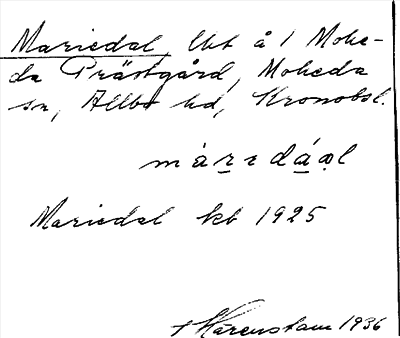 Mariedal, lht å 1 Mohe-
da Prästgård, Moheda
sn, Allbo hd, Kronobsl.
màrɪdáal
Mariedal kb 1925
Harenstam 1936